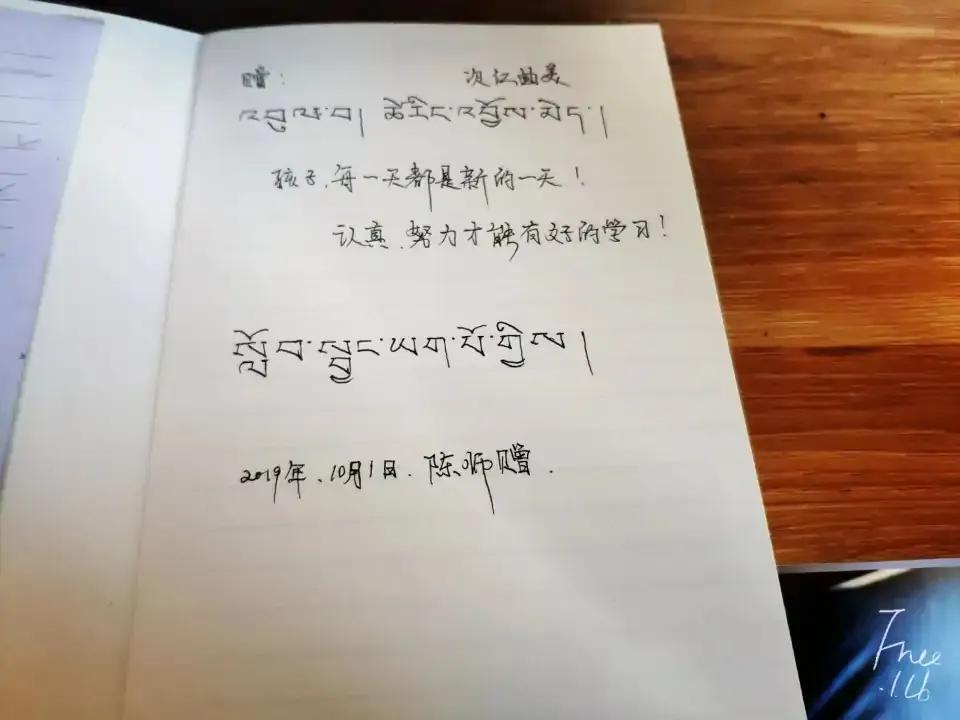 赠： 次仁曲美
འབུལ་བ། ཚེ་རིང་འགྱུར་མེད།
孩子，每一天都是新的一天！
认真、努力才能有好的学习！
སློབ་སྦྱང་ཡག་པོ་གྱིས།
2019年、10月1日. 陈师赠.
Free